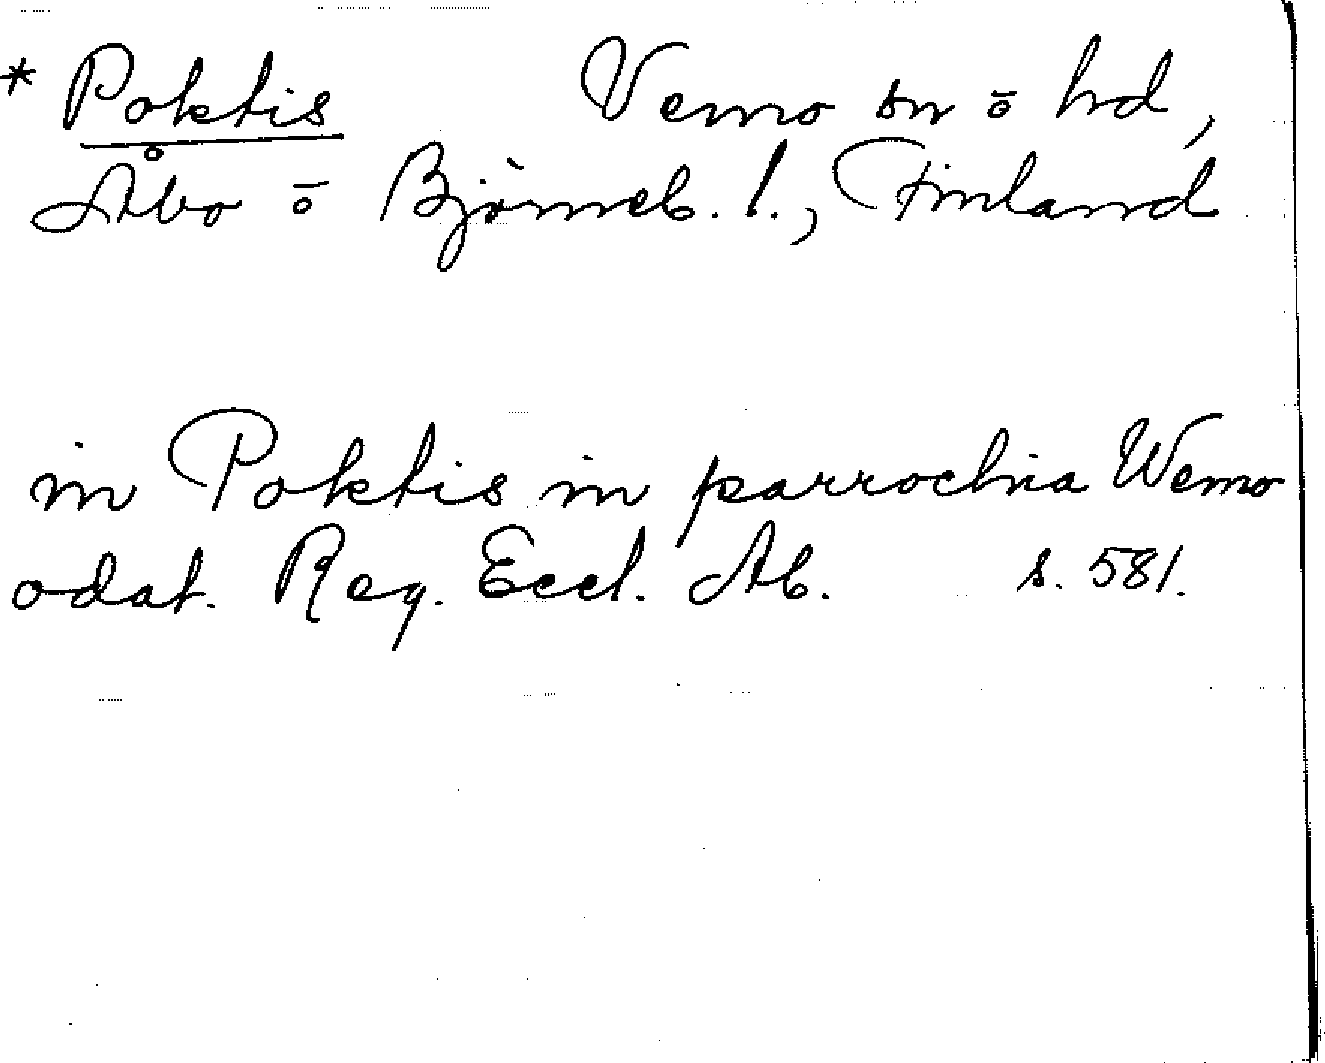 * Poktis Vemo sn ō hd,
Åbo ō Björneb. l., Finland
in Poktis in parrochia Wemo
odat. Reg. Eccl. Ab. s. 581.